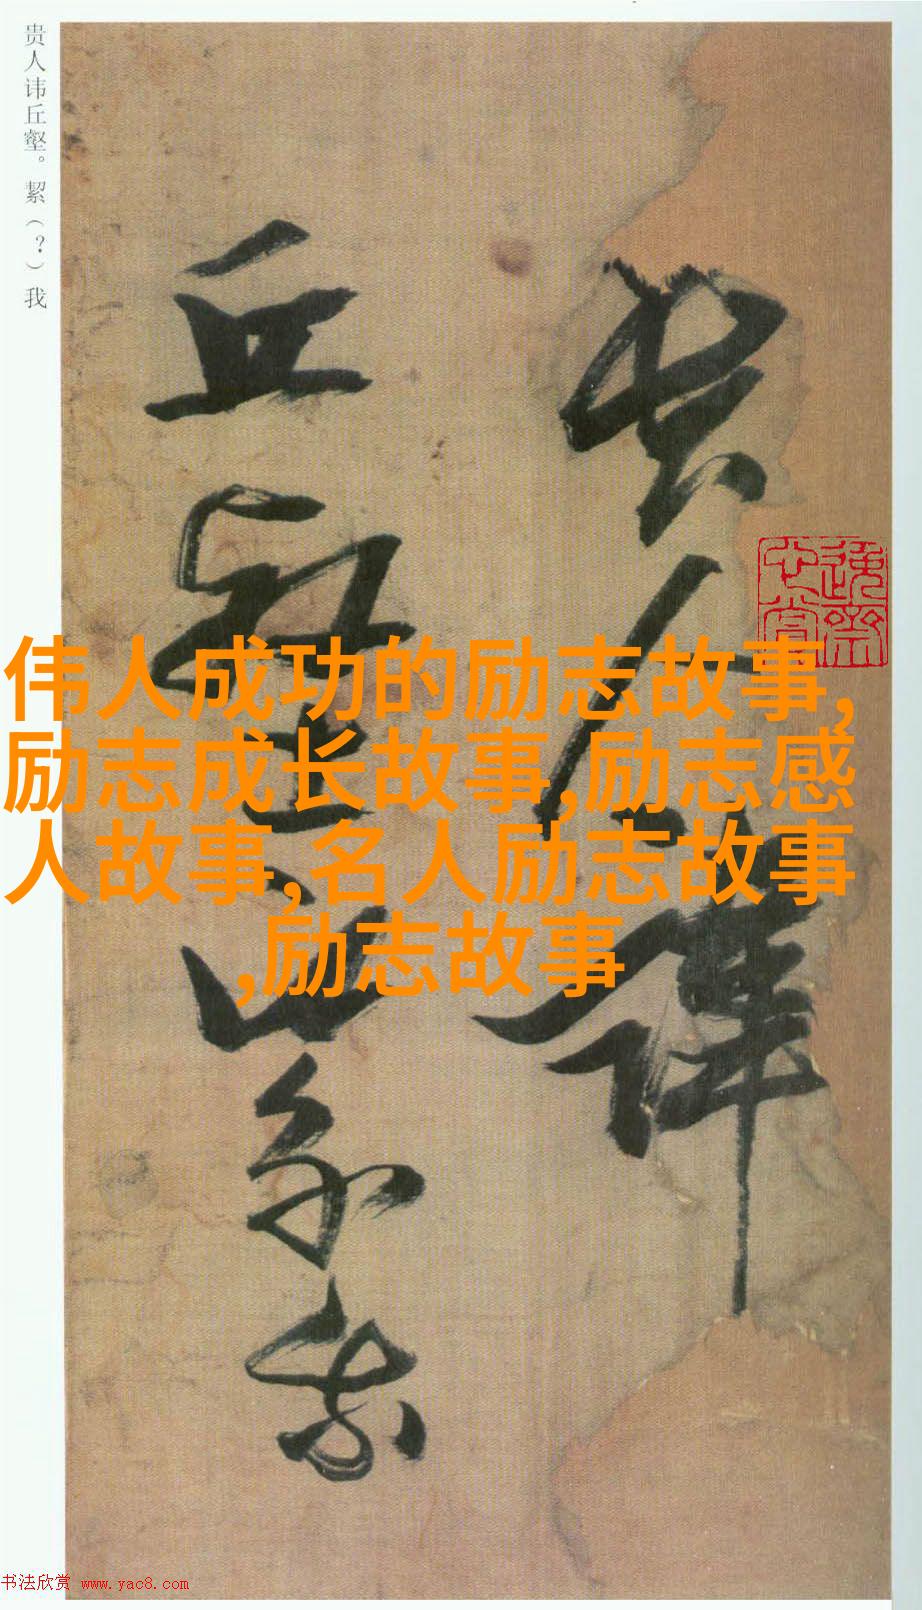 贵人讳丘壑。絜（？）我
贵人讳
丘壑絜我
伟人成功的励志故事,
励志成长故事,励志感
人故事,名人励志故事
,励志故事
书法欣赏 www.yac8.com